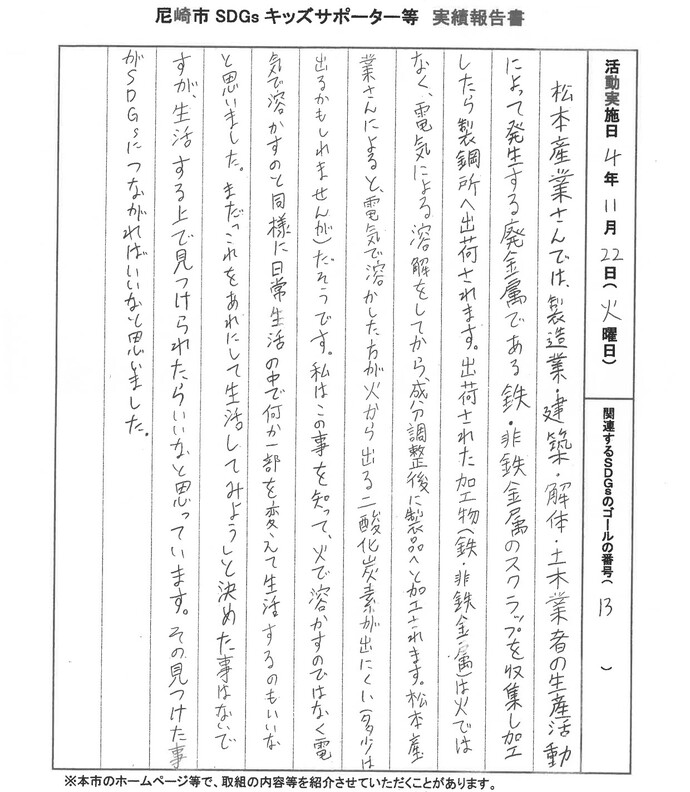 尼崎市 SDGs キッズサポーター等 実績報告書
活動実施日 4 年 11 月 22 日( 火 曜日)
関連するSDGsのゴールの番号( 13 )
松本産業さんでは、製造業・建築・解体・土木業者の生産活動
によって発生する廃金属である鉄・非鉄金属のスクラップを収集し加工
したら製鋼所へ出荷されます。出荷された加工物(鉄・非鉄金属)は火では
なく、電気による溶解をしてから、成分調整後に製品へと加工されます。松本産
業さんによると、電気で溶かした方が火から出る二酸化炭素が出にくい(多少は
出るかもしれませんが)だそうです。私はこの事を知って、火で溶かすのではなく電
気で溶かすのと同様に日常生活の中で何か一部を変えて生活するのもいいな
と思いました。まだ「これをあれにして生活してみよう」と決めた事はないで
すが、生活する上で見つけられたらいいなと思っています。その見つけた事
がSDGsにつながればいいなと思いました。
※本市のホームページ等で、取組の内容等を紹介させていただくことがあります。